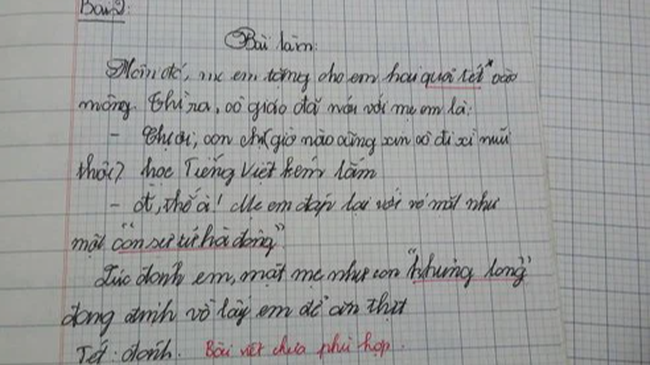 Bài 2:
Bài làm:
Hôm đó, mẹ em tặng cho em hai quả "tét" vào
mông. Thì ra, cô giáo đã nói với mẹ em là:
- Chị ơi, con chị giờ nào cũng xin cô đi xì mũi
thôi? học Tiếng Việt kém lắm
- Ờ, thế à! Mẹ em đáp lại với vẻ mặt như
mặt "con sư tử hà đông"
Lúc đánh em, mặt mẹ như con "khủng long"
đang định vồ lấy em để ăn thịt
Tét: đánh. Bài viết chưa phù hợp.